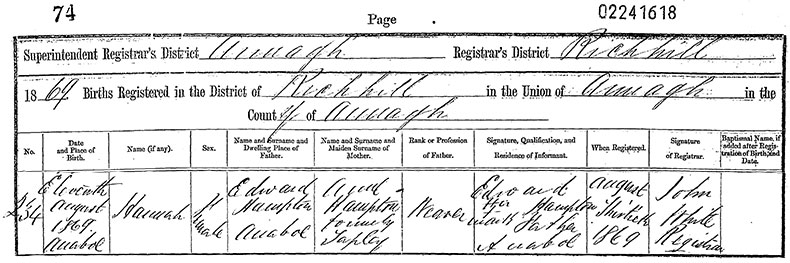 74 Page 02241618
Superintendent Registrar's District Armagh Registrar's District Richhill
1869 Births Registered in the District of Richhill in the Union of Armagh in the
County of Armagh
No. Date and Place of Birth. Name (if any). Sex. Name and Surname and Dwelling Place of Father. Name and Surname and Maiden Surname of Mother. Rank or Profession of Father. Signature, Qualification, and Residence of Informant. When Registered. Signature of Registrar. Baptismal Name, if added after Registration of Birth, and Date.
Eleventh August 1869 Hannah Female Edward Hampton Hampton formerly Tapley Weaver Edward Hampton Her mark Father August Thirtieth 1869 John White Registrar